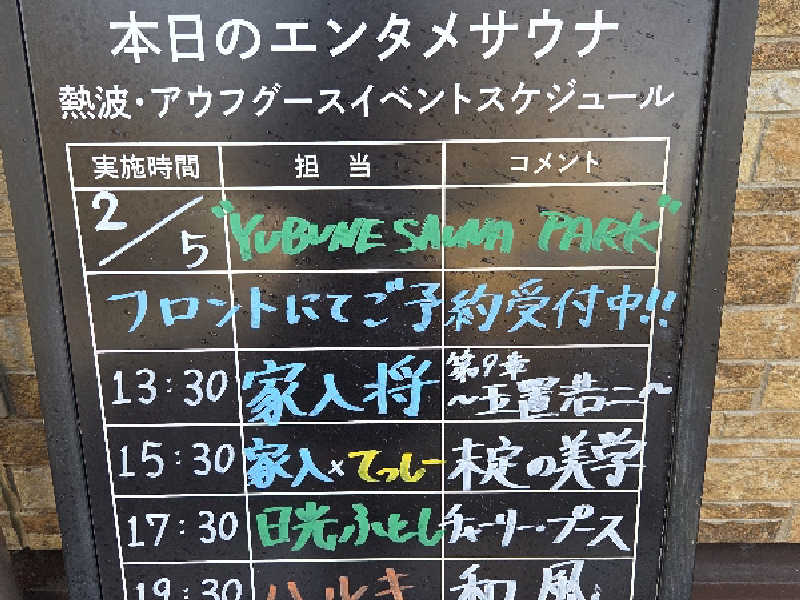 本日のエンタメサウナ
熱波・アウフグースイベントスケジュール
実施時間 担当 コメント
2/5 "YUBUNE SAUNA PARK"
フロントにてご予約受付中!!
13:30 家入将 第9章 〜玉置浩二〜
15:30 家入×てっしー 未定の美学
17:30 日光ふとし チャーリー・プース
19:30 ハルキ 和風